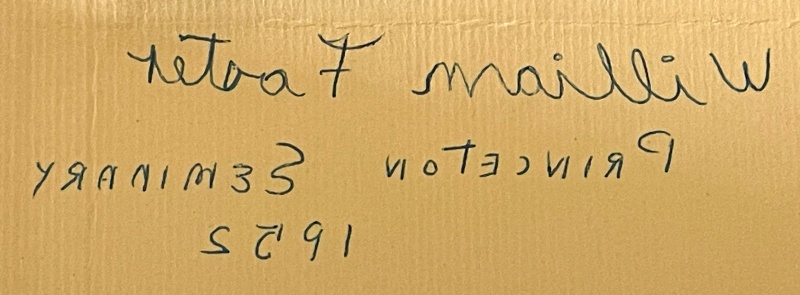 William Foster
Princeton Seminary
1952